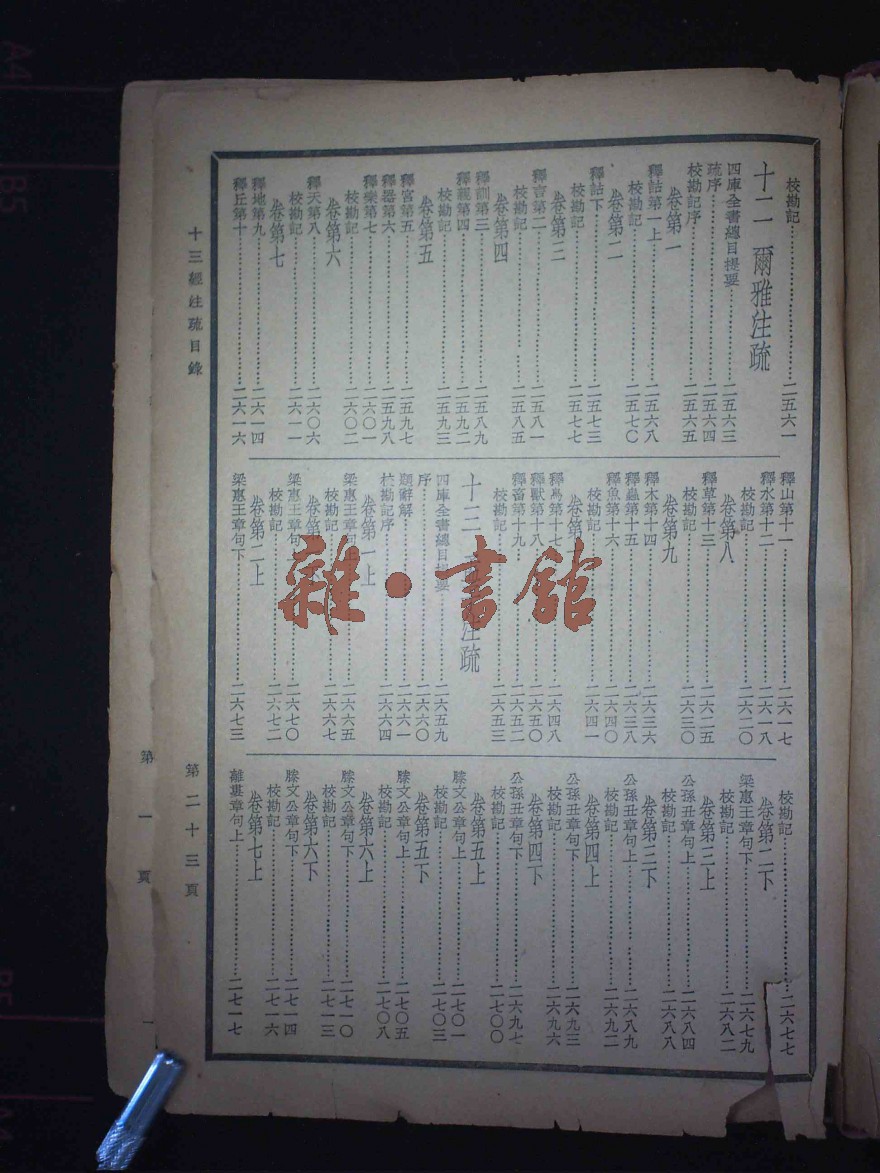 校勘記……二五六一
十二　爾雅注疏
四庫全書總目提要……二五六三
疏序……二五六四
校勘記序……二五六五
卷第一
釋詁第一上……二五六八
校勘記……二五七〇
卷第二
釋詁下……二五七三
校勘記……二五七七
卷第三
釋言第二……二五八一
校勘記……二五八五
卷第四
釋訓第三……二五八九
釋親第四……二五九二
校勘記……二五九三
卷第五
釋宮第五……二五九七
釋器第六……二五九八
釋樂第七……二六〇一
校勘記……二六〇二
卷第六
釋天第八……二六〇六
校勘記……二六一一
卷第七
釋地第九……二六一四
釋丘第十……二六一六
釋山第十一……二六一七
釋水第十二……二六一八
校勘記……二六二〇
卷第八
釋草第十三……二六二五
校勘記……二六三〇
卷第九
釋木第十四……二六三六
釋蟲第十五……二六三八
釋魚第十六……二六四〇
校勘記……二六四一
卷第
釋鳥第十七……二六四八
釋獸第十八……二六五〇
釋畜第十九……二六五二
校勘記……二六五三
十三　注疏
四庫全書總目提要……二六五九
序……二六六〇
題辭解……二六六一
校勘記序……二六六四
卷第一上
梁惠王章句上……二六六五
校勘記……二六六七
卷第
梁惠王章句……二六七〇
校勘記……二六七二
卷第二上
梁惠王章句下……二六七三
校勘記……二六七七
卷第二下
梁惠王章句下……二六七九
校勘記……二六八二
卷第三上
公孫丑章句上……二六八四
校勘記……二六八八
卷第三下
公孫丑章句上……二六八九
校勘記……二六九二
卷第四上
公孫丑章句下……二六九三
校勘記……二六九六
卷第四下
公孫丑章句下……二六九七
校勘記……二七〇〇
卷第五上
滕文公章句上……二七〇一
校勘記……二七〇三
卷第五下
滕文公章句上……二七〇五
校勘記……二七〇八
卷第六上
滕文公章句下……二七一〇
校勘記……二七一三
卷第六下
滕文公章句下……二七一四
校勘記……二七一六
卷第七上
離婁章句上……二七一七
十三經注疏目錄
第二十三頁
第一頁
雜·書館
A4
B5